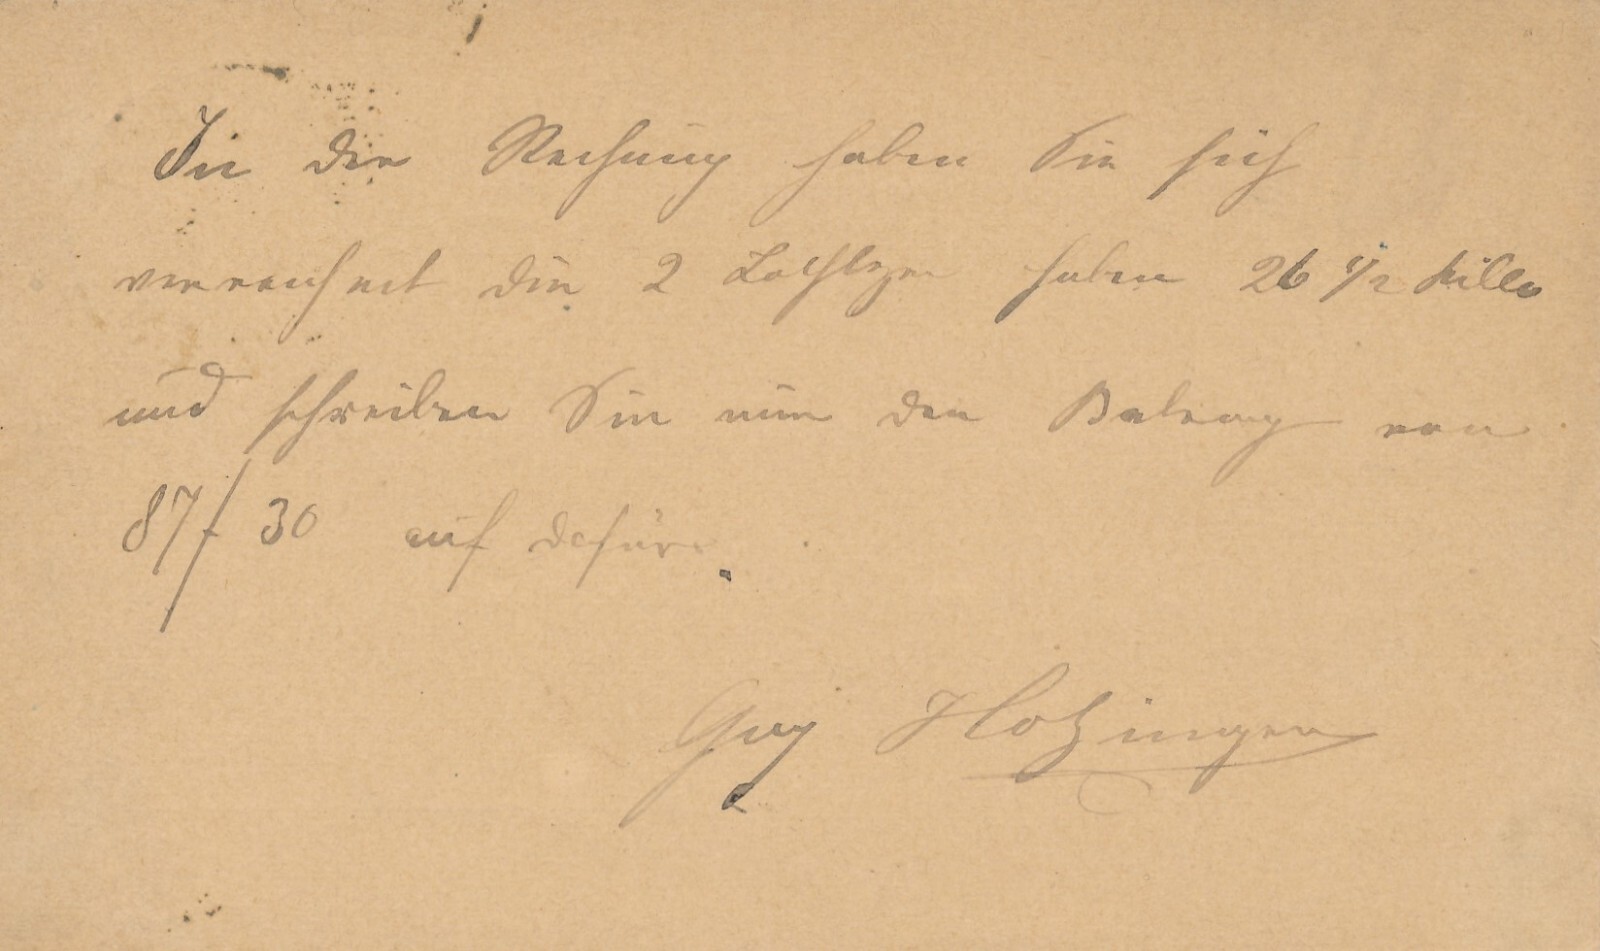 In der Rechnung haben Sie sich
verrechnet die 2 haben 26 1/2 Killo
und schreiben Sie nun den Betrag von
87/30 auf dafür.
Hotzinger